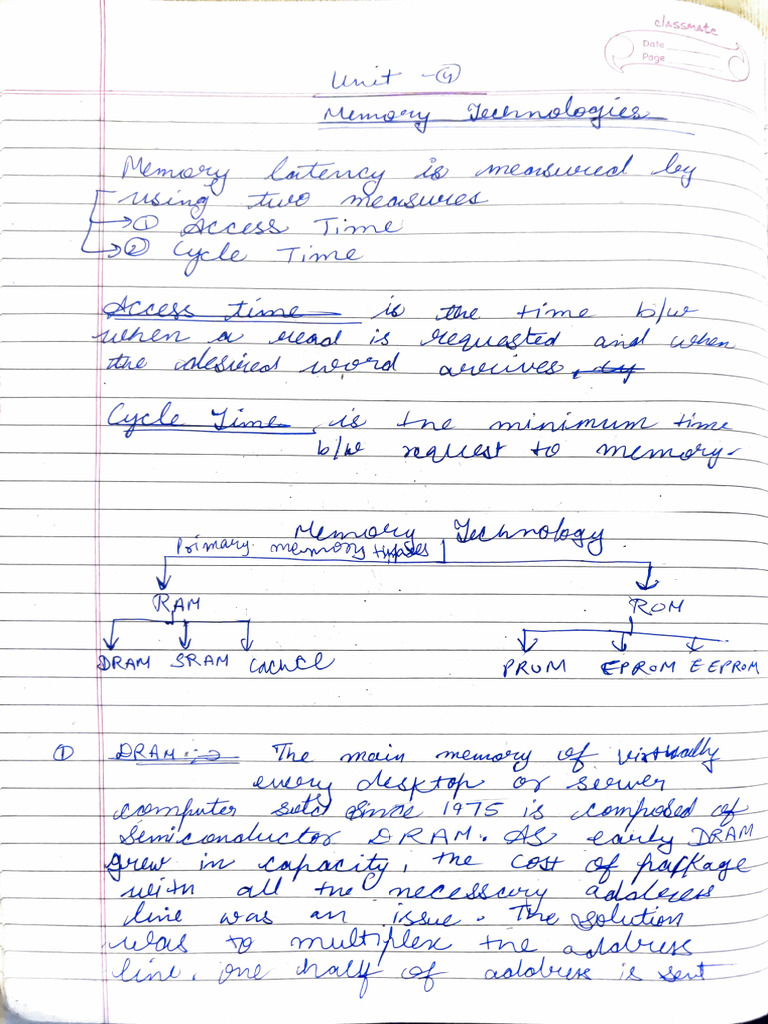 classmate
Date
Page
Unit - 4
Memory Technologies
Memory latency is measured by
using two measures
→ ① Access Time
→ ② Cycle Time
Access time is the time b/w
when a read is requested and when
the desired word arrives.
Cycle Time is the minimum time
b/w request to memory.
Memory Technology
Primary memory types
RAM ROM
DRAM SRAM Cache PROM EPROM EEPROM
① DRAM :→ The main memory of virtually
every desktop or server
computer since 1975 is composed of
semiconductor DRAM. As early DRAM
grew in capacity, the cost of package
with all the necessary address
line was an issue. The solution
was to multiplex the address
line, one half of address is sent